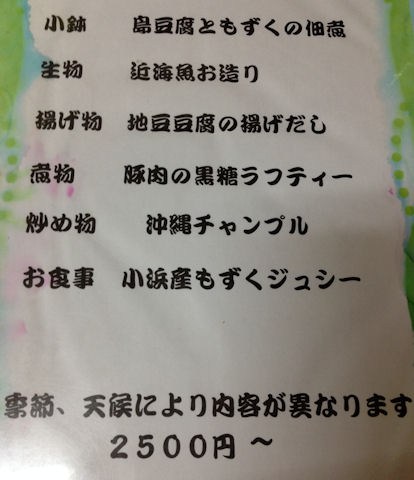 小鉢 島豆腐ともずくの佃煮
生物 近海魚お造り
揚げ物 地豆豆腐の揚げだし
煮物 豚肉の黒糖ラフティー
炒め物 沖縄チャンプル
お食事 小浜産もずくジュシー
季節、天候により内容が異なります
2500円~